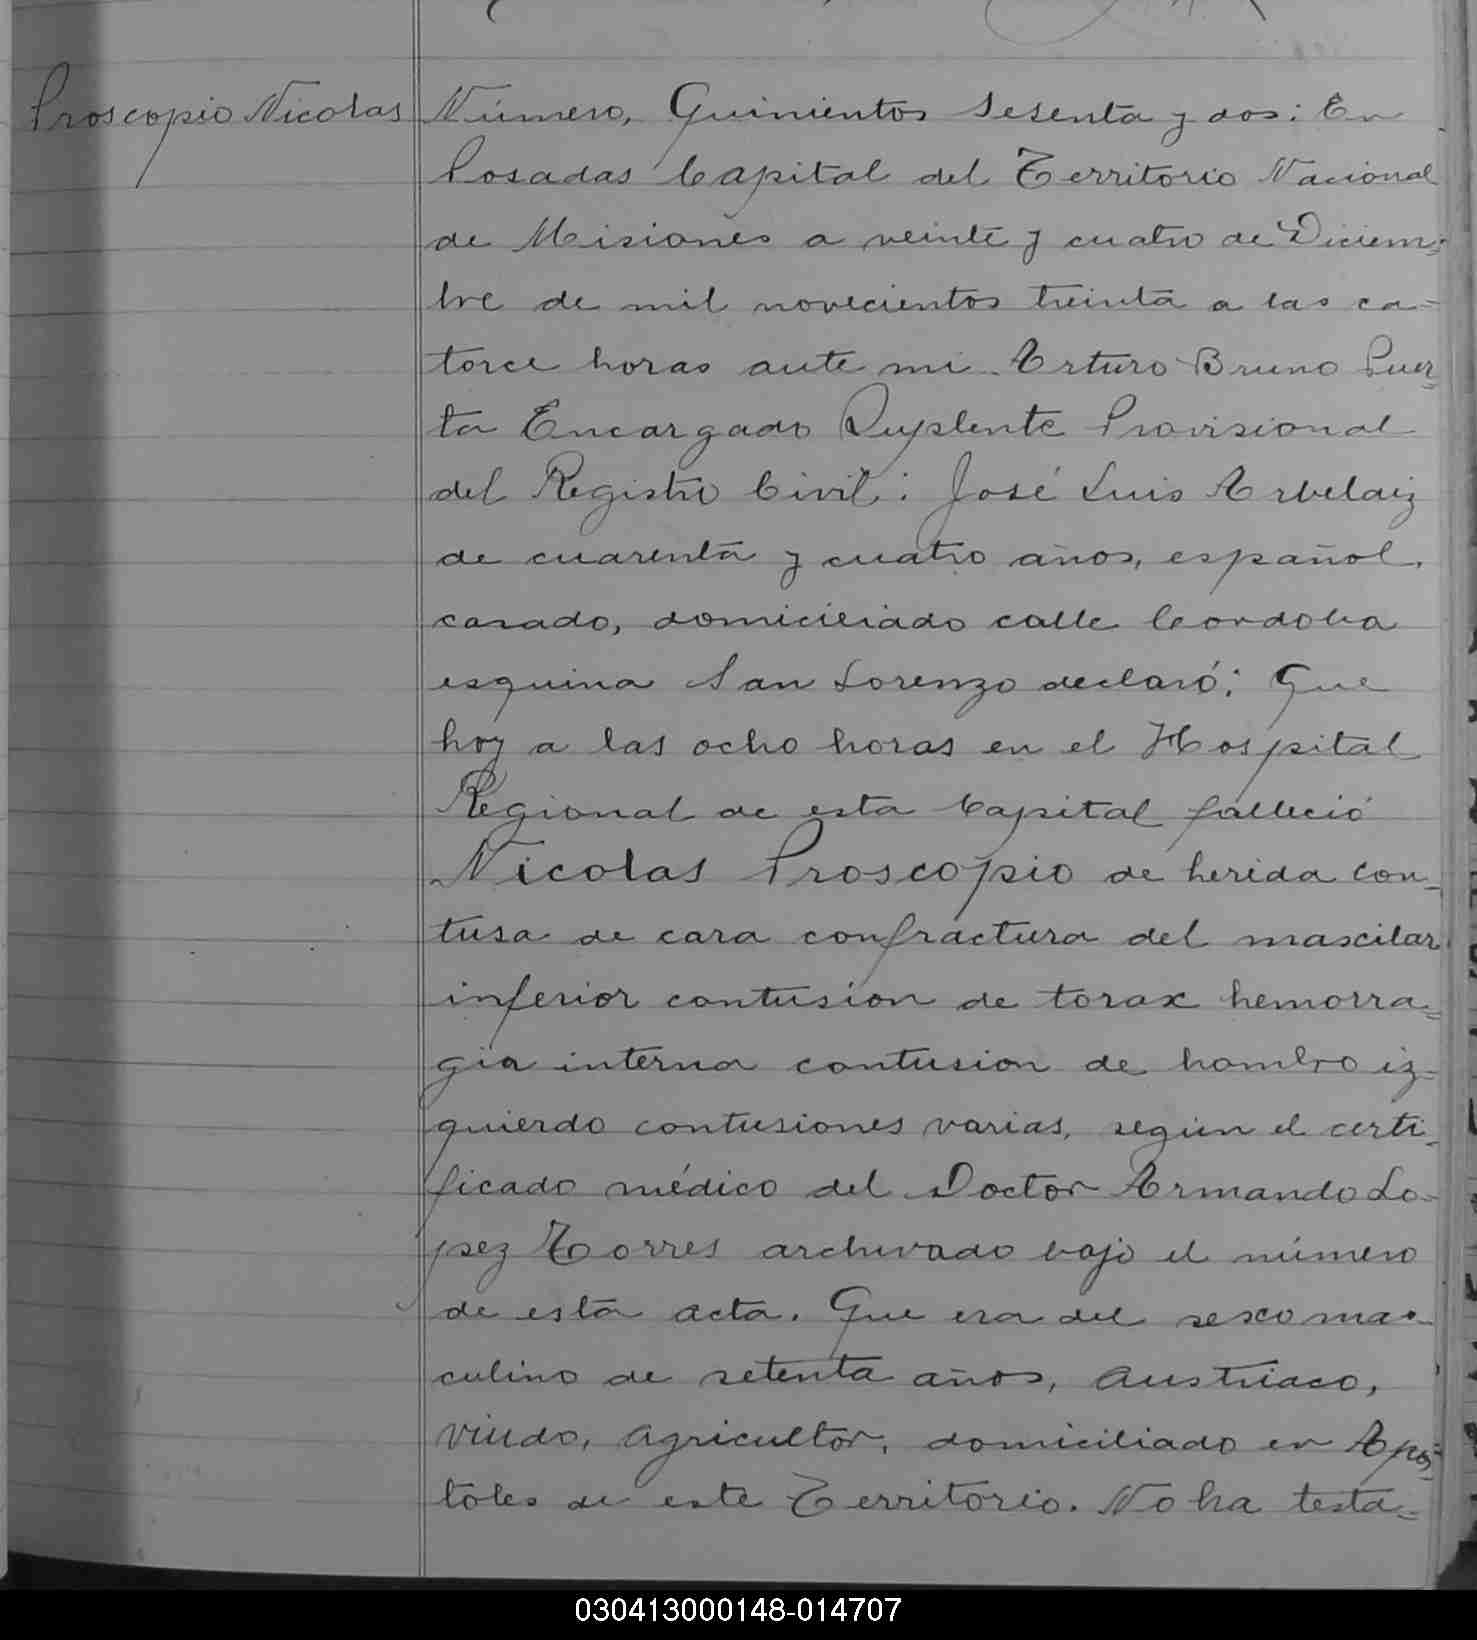 Proscopio Nicolas
Número, Quinientos sesenta y dos: En
Posadas Capital del Territorio Nacional
de Misiones a veinte y cuatro de Diciem=
bre de mil novecientos treinta a las ca=
torce horas ante mi Arturo Bruno Puer=
ta Encargado Suplente Provisional
del Registro Civil: José Luis Arbelaiz
de cuarenta y cuatro años, español,
casado, domiciliado calle Cordoba
esquina San Lorenzo declaró: Que
hoy a las ocho horas en el Hospital
Regional de esta Capital falleció
Nicolas Proscopio de herida con=
tusa de cara confractura del mascilar
inferior contusion de torax hemorra=
gia interna contusion de hombro iz=
quierdo contusiones varias, según el certi=
ficado médico del Doctor Armando Lo=
pez Torres archivado bajo el número
de esta acta. Que era del sexo mas=
culino de setenta años, Austriaco,
viudo, agricultor, domiciliado en Após=
toles de este Territorio. No ha testa=
030413000148-014707